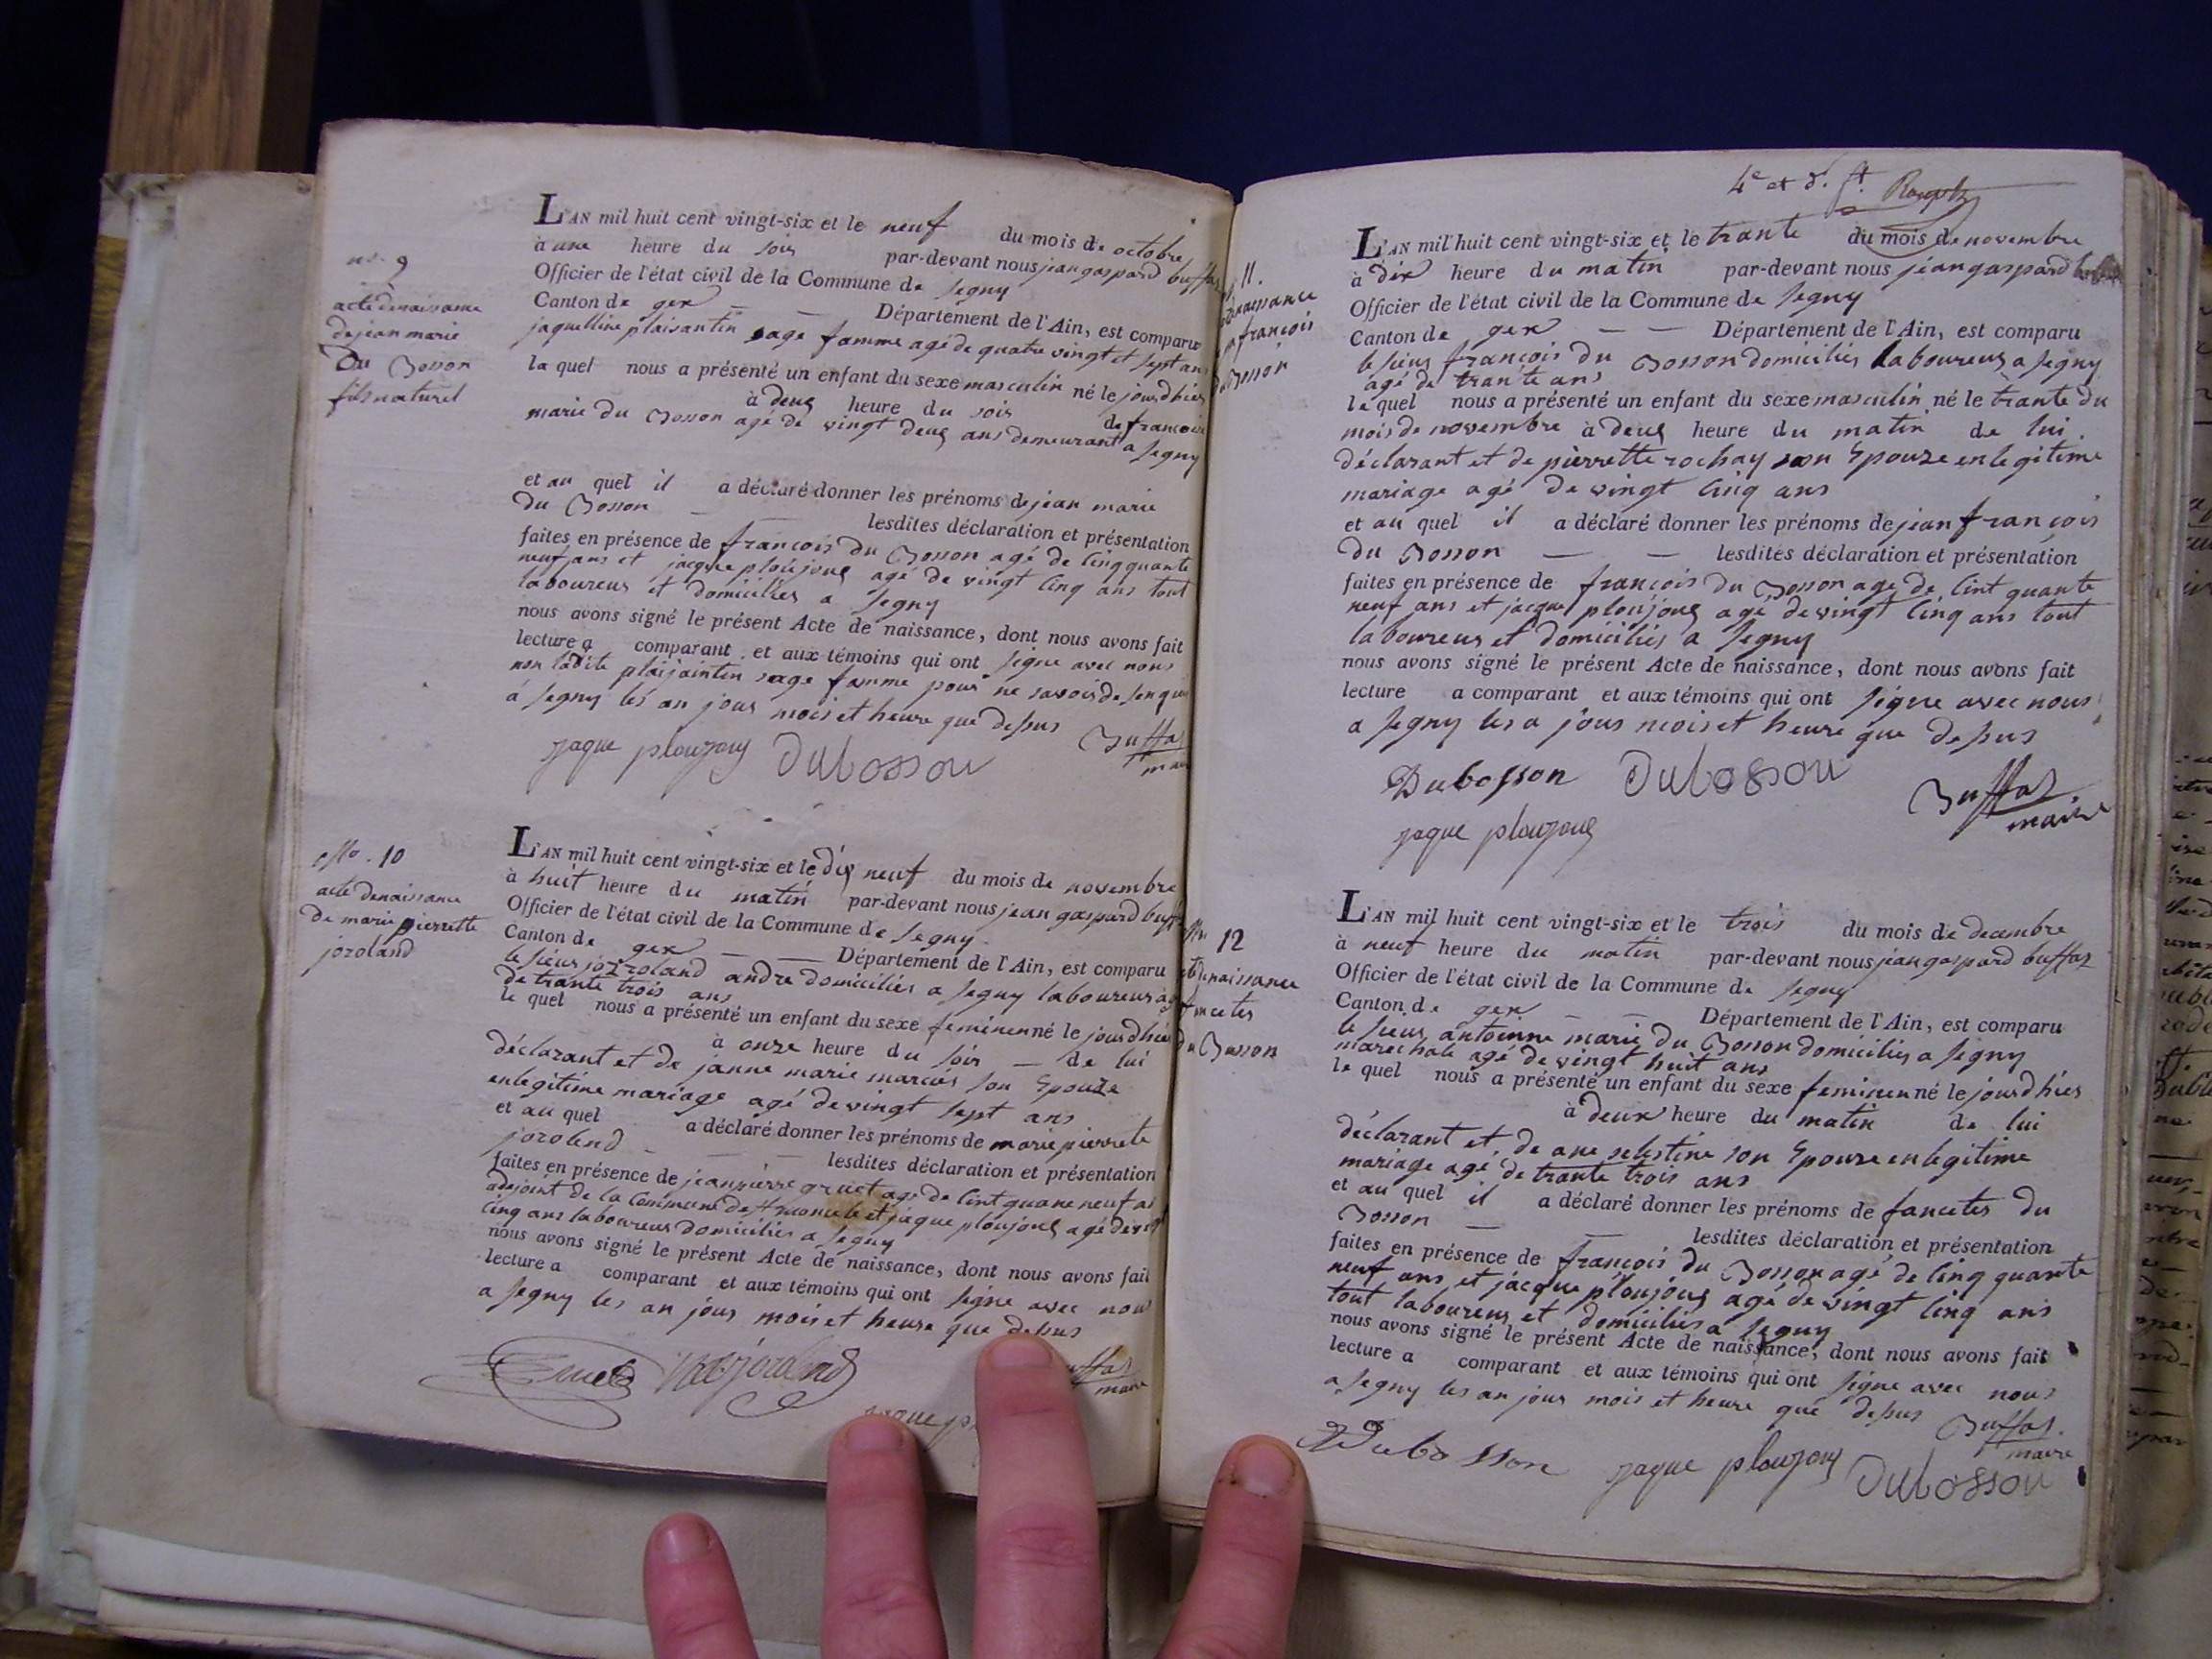 no. 9
acte denaissance
dejean marie
Du Bosson
fils naturel
L'AN mil huit cent vingt-six et le neuf du mois de octobre
à une heure du soir par-devant nous jean gaspard buffa
Officier de l'état civil de la Commune de segny
Canton de gex — — Département de l'Ain, est comparu
jaquelline plaisantin sage famme agé de quatre vingt et sept ans
la quel nous a présenté un enfant du sexe masculin né le jourdhier
à deux heure du soir de francoise
marie du Bosson agé de vingt deux ans demeurant a segny
et au quel il a déclaré donner les prénoms de jean marie
du Bosson — — lesdites déclaration et présentation
faites en présence de francois du Bosson agé de cinqquante
neuf ans et jacque ploujoux agé de vingt cinq ans tout
laboureur et domiciliés a segny
nous avons signé le présent Acte de naissance, dont nous avons fait
lecture a comparant et aux témoins qui ont signe avec nous
non ladite plaisaintin sage famme pour ne savoir de
à segny les an jour mois et heure que desus
jaque ploujouy Dubosson Buffaz
maire
No. 10
acte denaissance
de marie pierrette
joroland
L'AN mil huit cent vingt-six et le dix neuf du mois de novembre
à huit heure du matin par-devant nous jean gaspard buff
Officier de l'état civil de la Commune de segny
Canton de gex — — Département de l'Ain, est comparu
le sieur joroland andre domiciliés a segny laboureur ag
de trante trois ans
le quel nous a présenté un enfant du sexe feminen né le jourdhier
à onze heure du soir — de lui
déclarant et de janne marie marciés son Epouze
enlegitime mariage agé devingt sept ans
et au quel a déclaré donner les prénoms de marie pierrete
jorolend — — lesdites déclaration et présentation
faites en présence de jean pierre gruet age de cint quane neuf a
adejoint de la Commune de et jaque ploujoux agé devingt
cinq ans laboureur domiciliés a segny
nous avons signé le présent Acte de naissance, dont nous avons fait
lecture a comparant et aux témoins qui ont signe avec nous
a segny les an jour mois et heure que desus
uffaz
maire
jaque p
4e et d. ft.
11.
naissance
francois
Bosson
L'AN mil huit cent vingt-six et le trante du mois de novembre
à dix heure du matin par-devant nous jean gaspard
Officier de l'état civil de la Commune de segny
Canton de gex — — Département de l'Ain, est comparu
le sieur francois du Bosson domiciliés laboureur a segny
agé de trante ans
le quel nous a présenté un enfant du sexe masculin né le trante du
mois de novembre à deux heure du matin de lui
déclarant et de pierrette rochay son Epouze enlegitime
mariage agé de vingt cinq ans
et au quel il a déclaré donner les prénoms de jean francois
du Bosson — — lesdites déclaration et présentation
faites en présence de francois du Bosson agé de cint quante
neuf ans et jacque ploujoux agé de vingt cinq ans tout
laboureur et domiciliés a segny
nous avons signé le présent Acte de naissance, dont nous avons fait
lecture a comparant et aux témoins qui ont signe avec nous
a segny les a jour mois et heure que desus
Dubosson Dubosson Buffaz
maire
jaque ploujoux
No 12
denaissance
fancetes
du Busson
L'AN mil huit cent vingt-six et le trois du mois de decembre
à neuf heure du matin par-devant nous jean gaspard buffaz
Officier de l'état civil de la Commune de segny
Canton de gex — — Département de l'Ain, est comparu
le sieur antoinne marie du Bosson domiciliés a segny
marechale agé de vingt huit ans
le quel nous a présenté un enfant du sexe feminen né le jourdhier
à deux heure du matin de lui
déclarant et de ane selestine son Epouse enlegitime
mariage agé de trante trois ans
et au quel il a déclaré donner les prénoms de fancetes du
Bosson — — lesdites déclaration et présentation
faites en présence de francois du Bosson agé de cinq quante
neuf ans et jacque ploujoux agé de vingt cinq ans
tout laboureur et domiciliés a segny
nous avons signé le présent Acte de naissance, dont nous avons fait
lecture a comparant et aux témoins qui ont signe avec nous
a segny les an jour mois et heure que desus Buffaz.
maire
Dubosson jaque ploujoux Dubosson